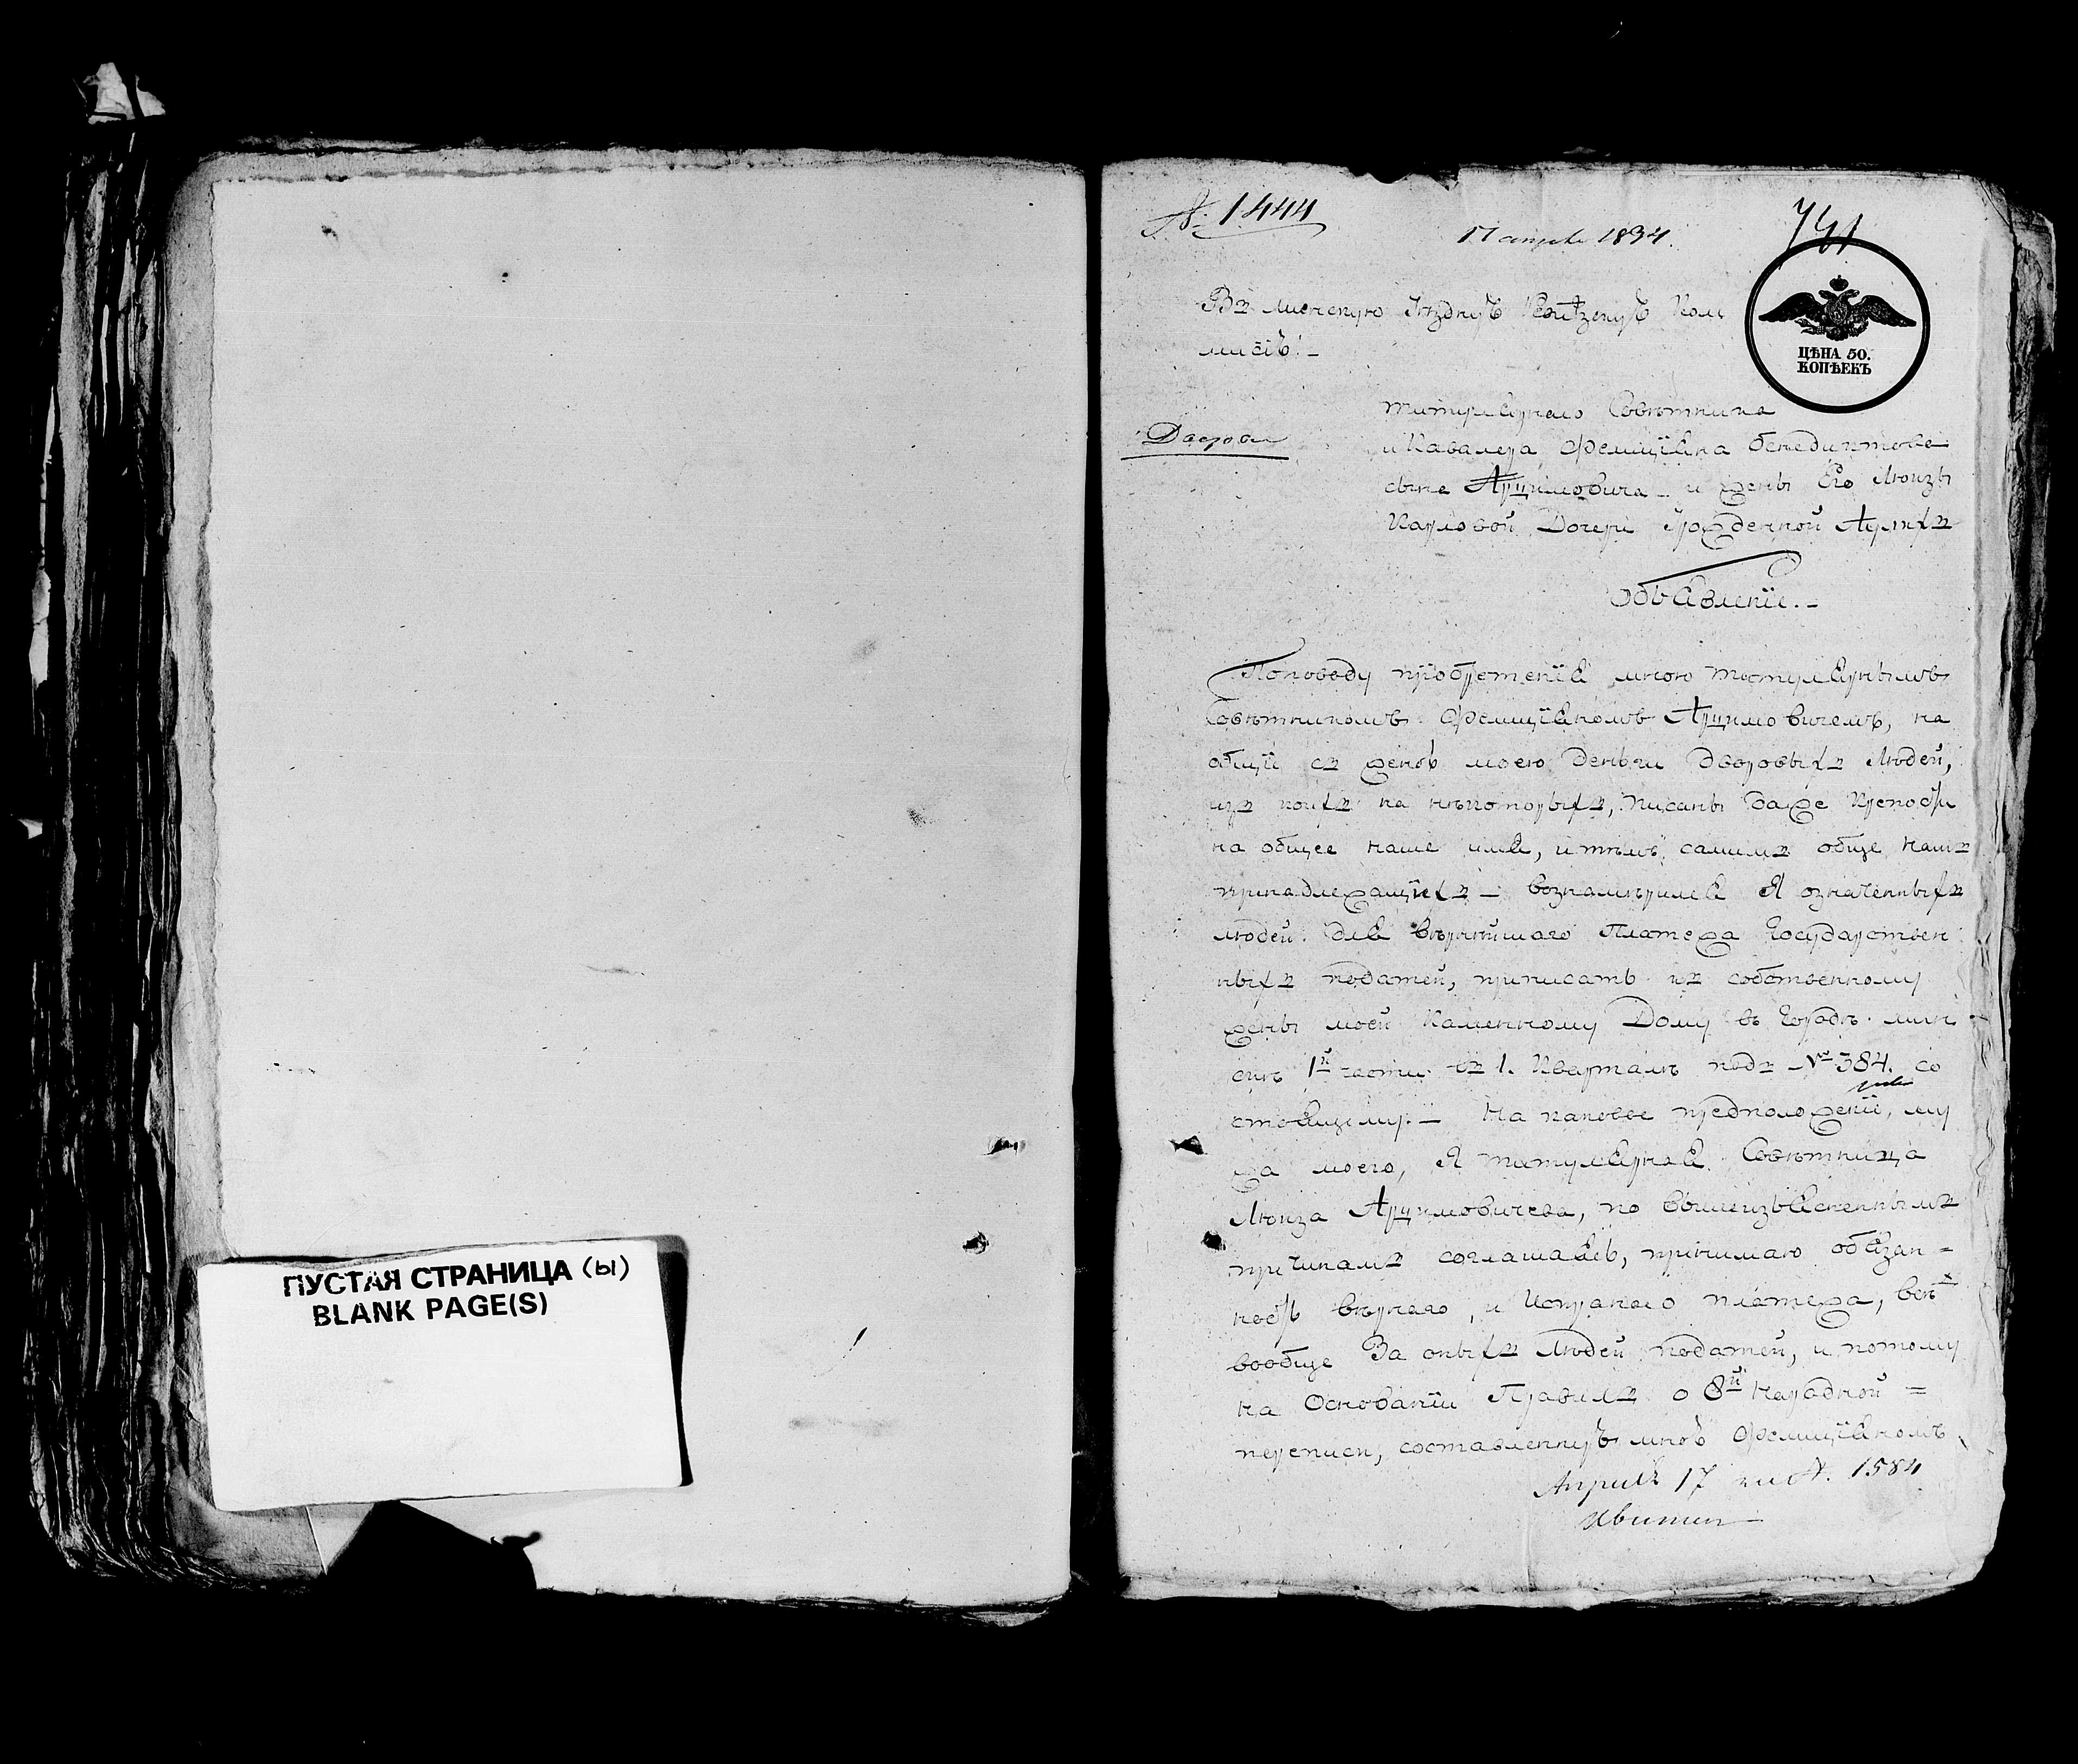 ПУСТАЯ СТРАНИЦА (ы)
BLANK PAGE(S)
№ 1444
17 апреля 1834.
741
Въ минскую Уѣздную Ревизскую Ком
мисію! –
ЦѢНА 50.
КОПѢЕКЪ
титулярнаго Совѣтника
и Кавалера Фелиціяна бенедиктова
сына Арцимовича и жены Его Люизы
Карловой Дочери Урожденной
Объявленіе. –
Поповоду пріобретенія мною титулярнымъ
Совѣтникомъ Фелиціяномъ Арцимовичемъ, на
общіи съ женою моею деньги дворовыхъ Людей,
изъ коихъ на нѣкоторыхъ, писаны даже Крепости
на общее наше имя, итѣмъ самимъ обще намъ
принадлежащихъ – вознамѣрился Я означенныхъ
людей для вѣрнѣйшаго Платежа Государствен
ныхъ податей, приписать къ собственному
жены моей Каменному Дому въ Городѣ мин
скѣ 1й части въ 1. Кварталѣ подъ № 384. со
стоящему. – На каковое предположеніе, му
жа моего, Я титулярная Совѣтница
Люиза Арцимовичева, по вышеизъясненнымъ
причинамъ соглашаясь, принимаю обязан =
ность вѣрнаго, и Исправнаго платежа, всѣхъ
вообще За оныхъ Людей податей, и потому
на Основаніи Правилъ о 8й народной =
переписи, составленную мною Фелиціяномъ
Апреля 17 1584